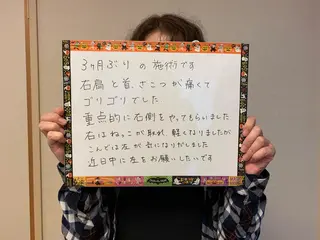 3ヶ月ぶりの施術です
右肩と首、さこつが痛くて
ゴリゴリでした
重点的に右側をやってもらいました
右はねっこが取れ、軽くなりましたが
こんどは左が気になりだしました
近日中に左をお願いしたいです